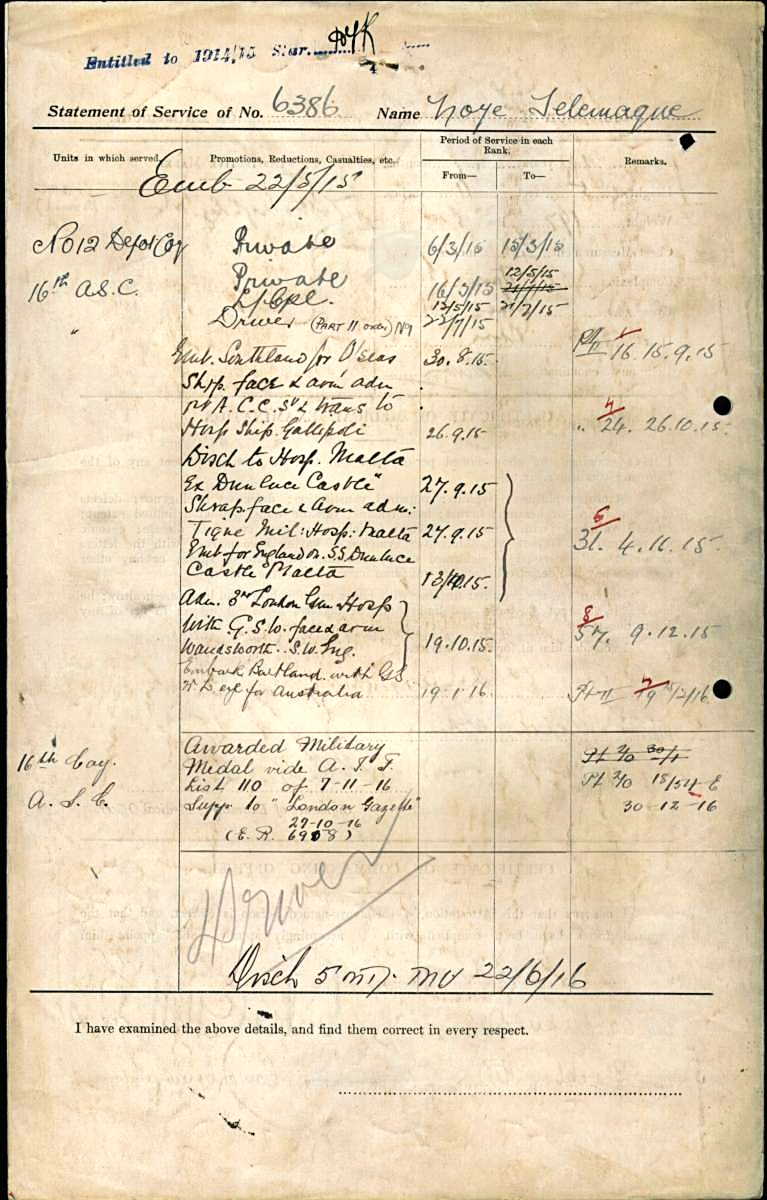 Entitled to 1914/15 Star
Statement of Service of No. 6386 Name Noye Telemaque
Units in which served.
Promotions, Reductions, Casualties, etc.
Period of Service in each Rank.
From—
To—
Remarks.
Emb 22/5/15
No 12 Depot Coy Private 6/3/15 15/3/15
16th A.S.C. Private 16/3/15 12/5/15
21/7/15
L/Cpl. 13/5/15 21/7/15
" Driver (PART II ORDER) No 1 22/7/15
Emb. Southland for O'seas 30.8.15. Pt II 16. 15.9.15
Shrp. face & arm adm
A.C.C.S. & trans to
Hosp Ship. Gallipoli 26.9.15 " 24. 26.10.15.
Disch to Hosp. Malta
Ex "Dunluce Castle" 27.9.15
Shrap face & arm adm:
Tigne Mil: Hosp: Malta 27.9.15
6
31. 4.11.15.
Emb for England on S.S. Dunluce
Castle Malta 13/10.15.
Adm. 3rd London Gen Hosp
With G.S.W. face & arm 8
57. 9.12.15
Wandsworth. S.W. Eng. 19.10.15.
Embark Portland with GS
W L eye for Australia 19.1.16. Pt II 79 /2/16
16th Coy.
A.S.C.
Awarded Military
Medal vide A.I.F.
List 110 of 7-11-16
Supp. to "London Gazette"
27-10-16
(E.R. 6908)
Pt 2/0 30/1
Pt 2/0 18/54 E
30-12-16
Driver
Disch 5 MD. MU 22/6/16
I have examined the above details, and find them correct in every respect.